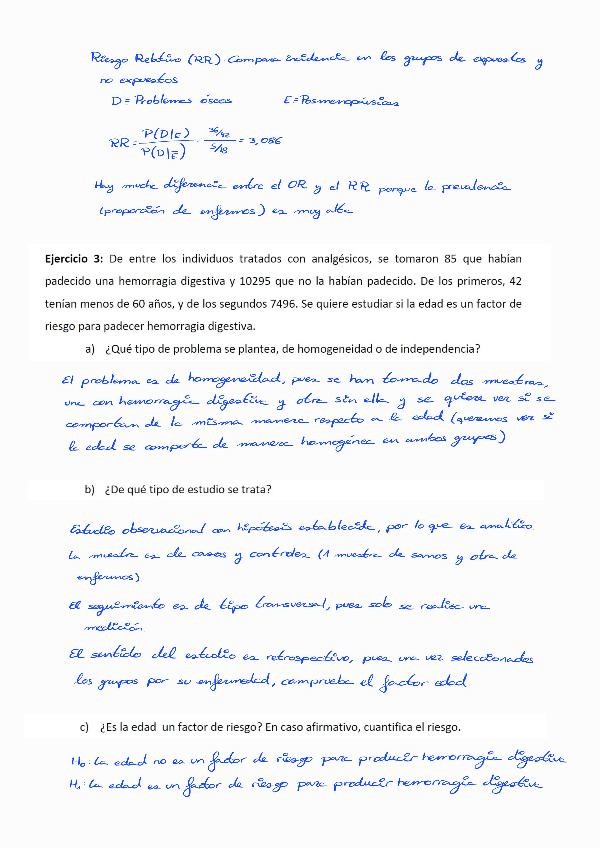 Riesgo Relativo (RR) Compara incidencia en los grupos de expuestos y
no expuestos
D = Problemas óseos E = Posmenopáusicas
RR = P(D|E) / P(D|Ē) = 36/42 / 5/18 = 3,086
Hay mucha diferencia entre el OR y el RR porque la prevalencia
(proporción de enfermos) es muy alta
Ejercicio 3: De entre los individuos tratados con analgésicos, se tomaron 85 que habían
padecido una hemorragia digestiva y 10295 que no la habían padecido. De los primeros, 42
tenían menos de 60 años, y de los segundos 7496. Se quiere estudiar si la edad es un factor de
riesgo para padecer hemorragia digestiva.
a) ¿Qué tipo de problema se plantea, de homogeneidad o de independencia?
El problema es de homogeneidad, pues se han tomado dos muestras,
una con hemorragia digestiva y otra sin ella y se quiere ver si se
comportan de la misma manera respecto a la edad (queremos ver si
la edad se comporta de manera homogénea en ambos grupos)
b) ¿De qué tipo de estudio se trata?
Estudio observacional con hipótesis establecida, por lo que es analítico
La muestra es de casos y controles (1 muestra de sanos y otra de
enfermos)
El seguimiento es de tipo transversal, pues solo se realiza una
medición
El sentido del estudio es retrospectivo, pues una vez seleccionados
los grupos por su enfermedad, comprueba el factor edad
c) ¿Es la edad un factor de riesgo? En caso afirmativo, cuantifica el riesgo.
H₀: La edad no es un factor de riesgo para producir hemorragia digestiva
H₁: La edad es un factor de riesgo para producir hemorragia digestiva